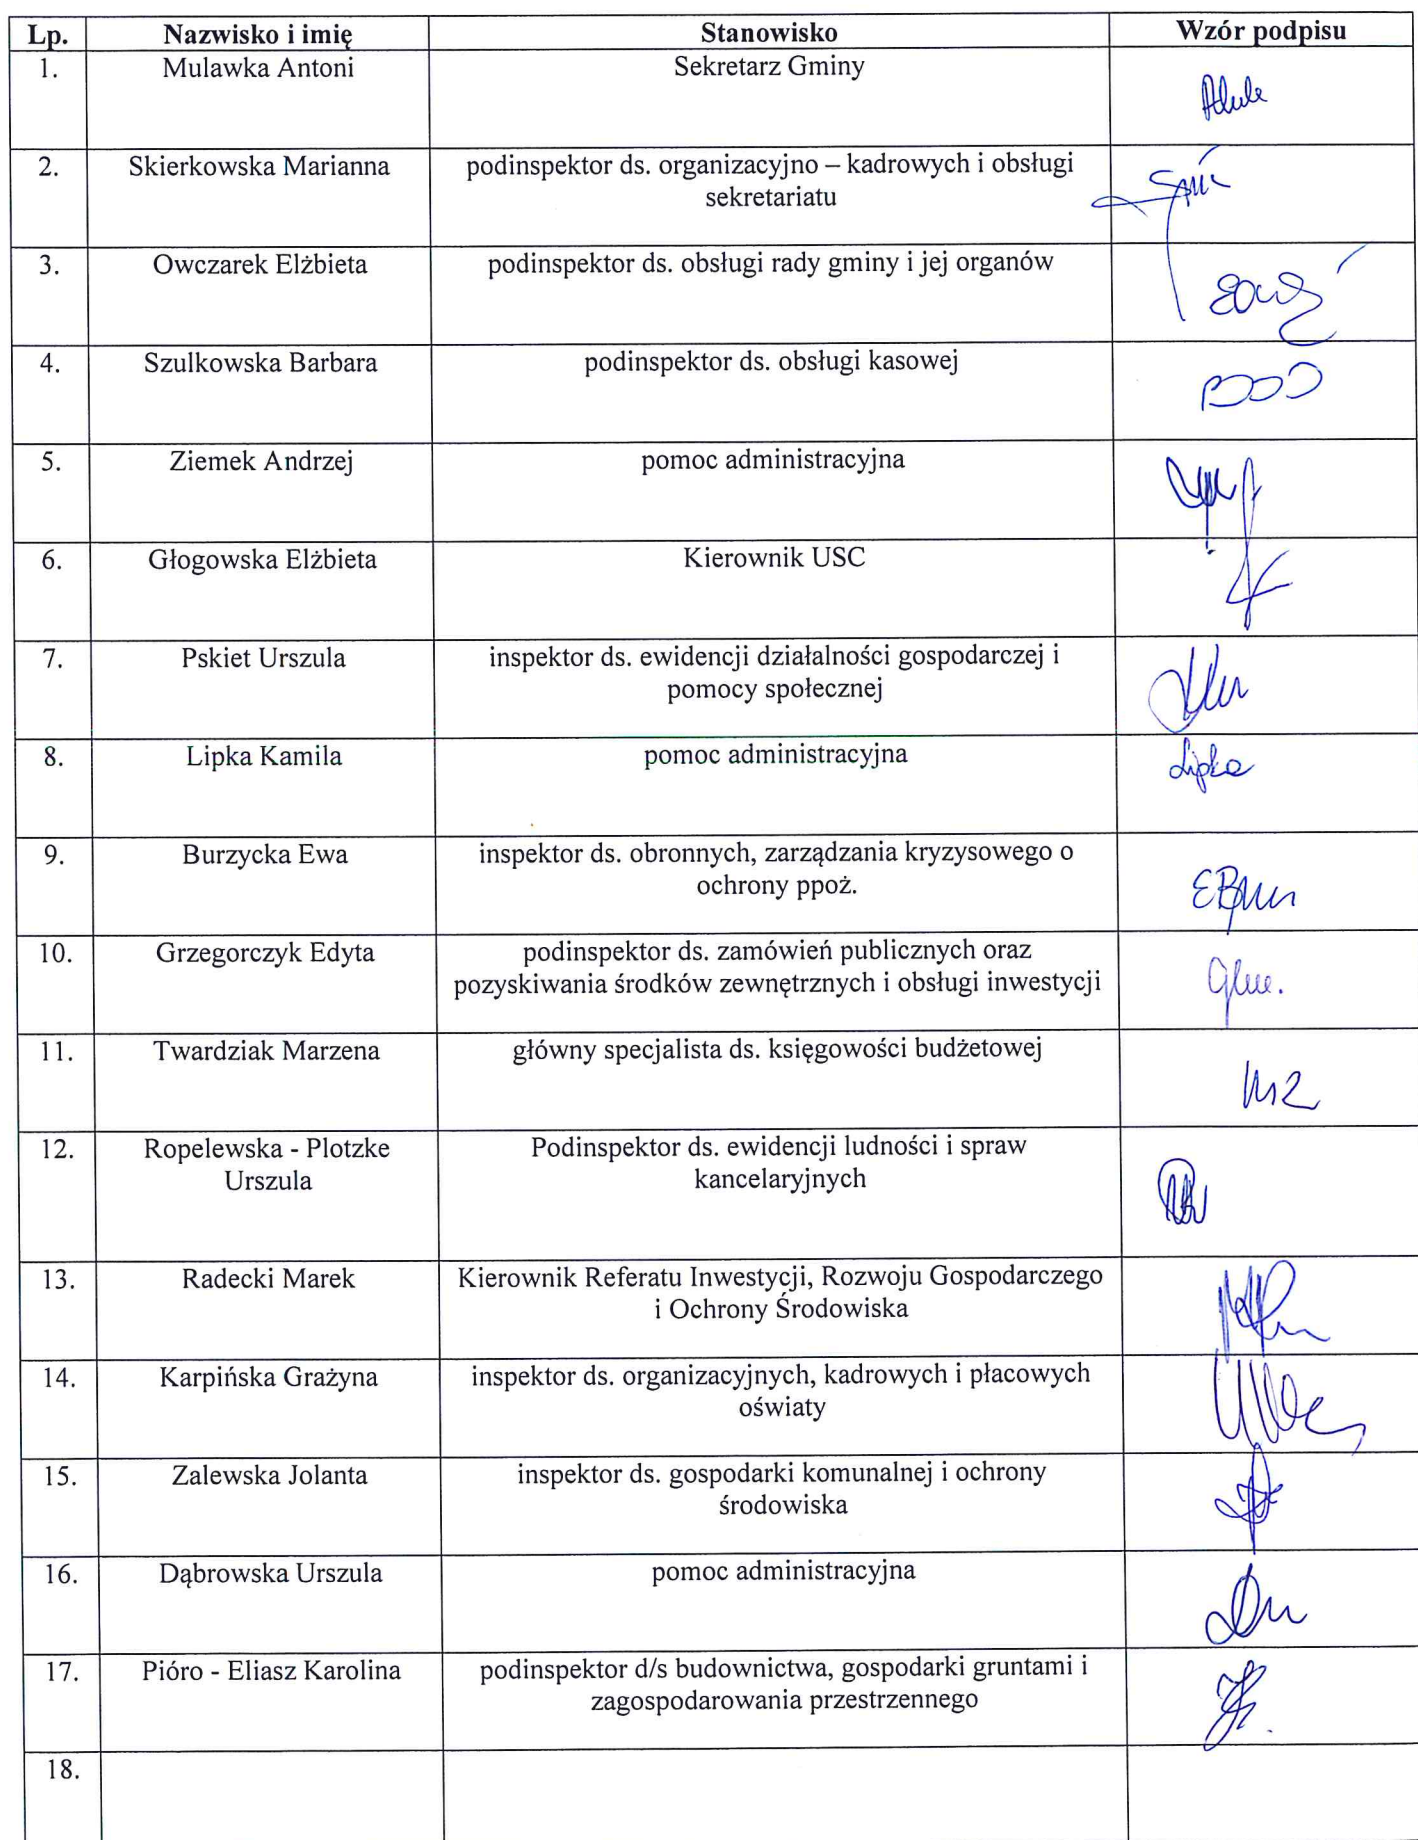 Lp. Nazwisko i imię Stanowisko Wzór podpisu
1. Mulawka Antoni Sekretarz Gminy
2. Skierkowska Marianna podinspektor ds. organizacyjno – kadrowych i obsługi
sekretariatu
3. Owczarek Elżbieta podinspektor ds. obsługi rady gminy i jej organów
4. Szulkowska Barbara podinspektor ds. obsługi kasowej
5. Ziemek Andrzej pomoc administracyjna
6. Głogowska Elżbieta Kierownik USC
7. Pskiet Urszula inspektor ds. ewidencji działalności gospodarczej i
pomocy społecznej
8. Lipka Kamila pomoc administracyjna Lipka
9. Burzycka Ewa inspektor ds. obronnych, zarządzania kryzysowego o
ochrony ppoż.
10. Grzegorczyk Edyta podinspektor ds. zamówień publicznych oraz
pozyskiwania środków zewnętrznych i obsługi inwestycji
11. Twardziak Marzena główny specjalista ds. księgowości budżetowej
12. Ropelewska - Plotzke Podinspektor ds. ewidencji ludności i spraw
Urszula kancelaryjnych
13. Radecki Marek Kierownik Referatu Inwestycji, Rozwoju Gospodarczego
i Ochrony Środowiska
14. Karpińska Grażyna inspektor ds. organizacyjnych, kadrowych i płacowych
oświaty
15. Zalewska Jolanta inspektor ds. gospodarki komunalnej i ochrony
środowiska
16. Dąbrowska Urszula pomoc administracyjna
17. Pióro - Eliasz Karolina podinspektor d/s budownictwa, gospodarki gruntami i
zagospodarowania przestrzennego
18.